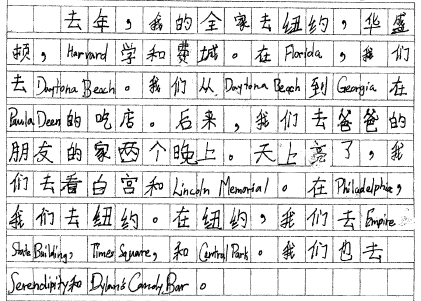 去年，我的全家去纽约，华盛
顿，Harvard 学和费城。在 Florida，我们
去 Daytona Beach。我们从 Daytona Beach 到 Georgia 在
Paula Deen 的吃店。后来，我们去爸爸的
朋友的家两个晚上。天上亮了，我
们去看白宫和 Lincoln Memorial。在 Philadelphia，
我们去纽约。在纽约，我们去 Empire
State Building，Times Square，和 Central Park。我们也去
Serendipity 和 Dylan's Candy Bar。